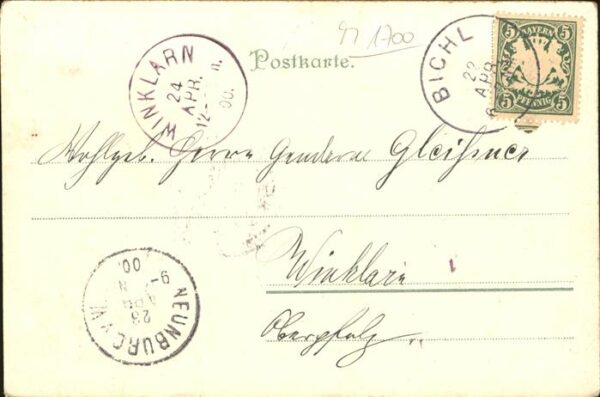 91 1700
Postkarte.
WINKLARN
24
APR.
12-
00.
BICHL
22
APR
5 BAYERN 5
5 PFENNIG 5
Wohlgeb. Herrn Gendarm Gleißner
Winklarn
Oberpfalz.
NEUNBURG v/W.
23
APR
N
9-
00.